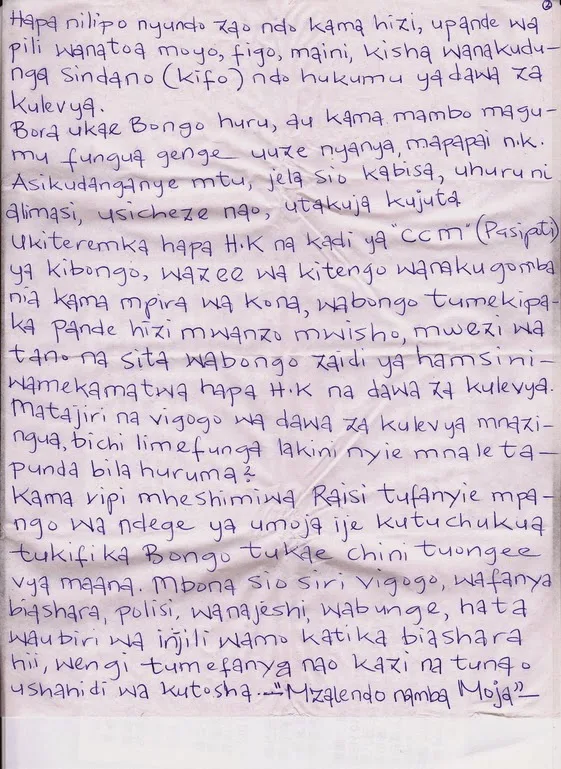 ②
Hapa nilipo nyundo zao ndo kama hizi, upande wa
pili wanatoa moyo, figo, maini, kisha wanakudu-
nga sindano (kifo) ndo hukumu ya dawa za
kulevya.
Bora ukae Bongo huru, au kama mambo magu-
mu fungua genge uuze nyanya, mapapai n.k.
Asikudanganye mtu, jela sio kabisa, uhuru ni
alimasi, usicheze nao, utakuja kujuta.
Ukiteremka hapa H.K na kadi ya "CCM" (Pasipoti)
ya kibongo, wazee wa kitengo wanakugomba
nia kama mpira wa kona, wabongo tumekipa-
ka pande hizi mwanzo mwisho, mwezi wa
tano na sita wabongo zaidi ya hamsini-
wamekamatwa hapa H.K na dawa za kulevya.
Matajiri na vigogo wa dawa za kulevya mnazi-
ngua, bichi limefunga lakini nyie mnaleta-
punda bila huruma?
Kama vipi mheshimiwa Raisi tufanyie mpa-
ngo wa ndege ya umoja ije kutuchukua
tukifika Bongo tukae chini tuongee
vya maana. Mbona sio siri vigogo, wafanya
biashara, polisi, wanajeshi, wabunge, hata
waubiri wa injili wamo katika biashara
hii, wengi tumefanya nao kazi na tunao
ushahidi wa kutosha.-"Mzalendo namba Moja"-